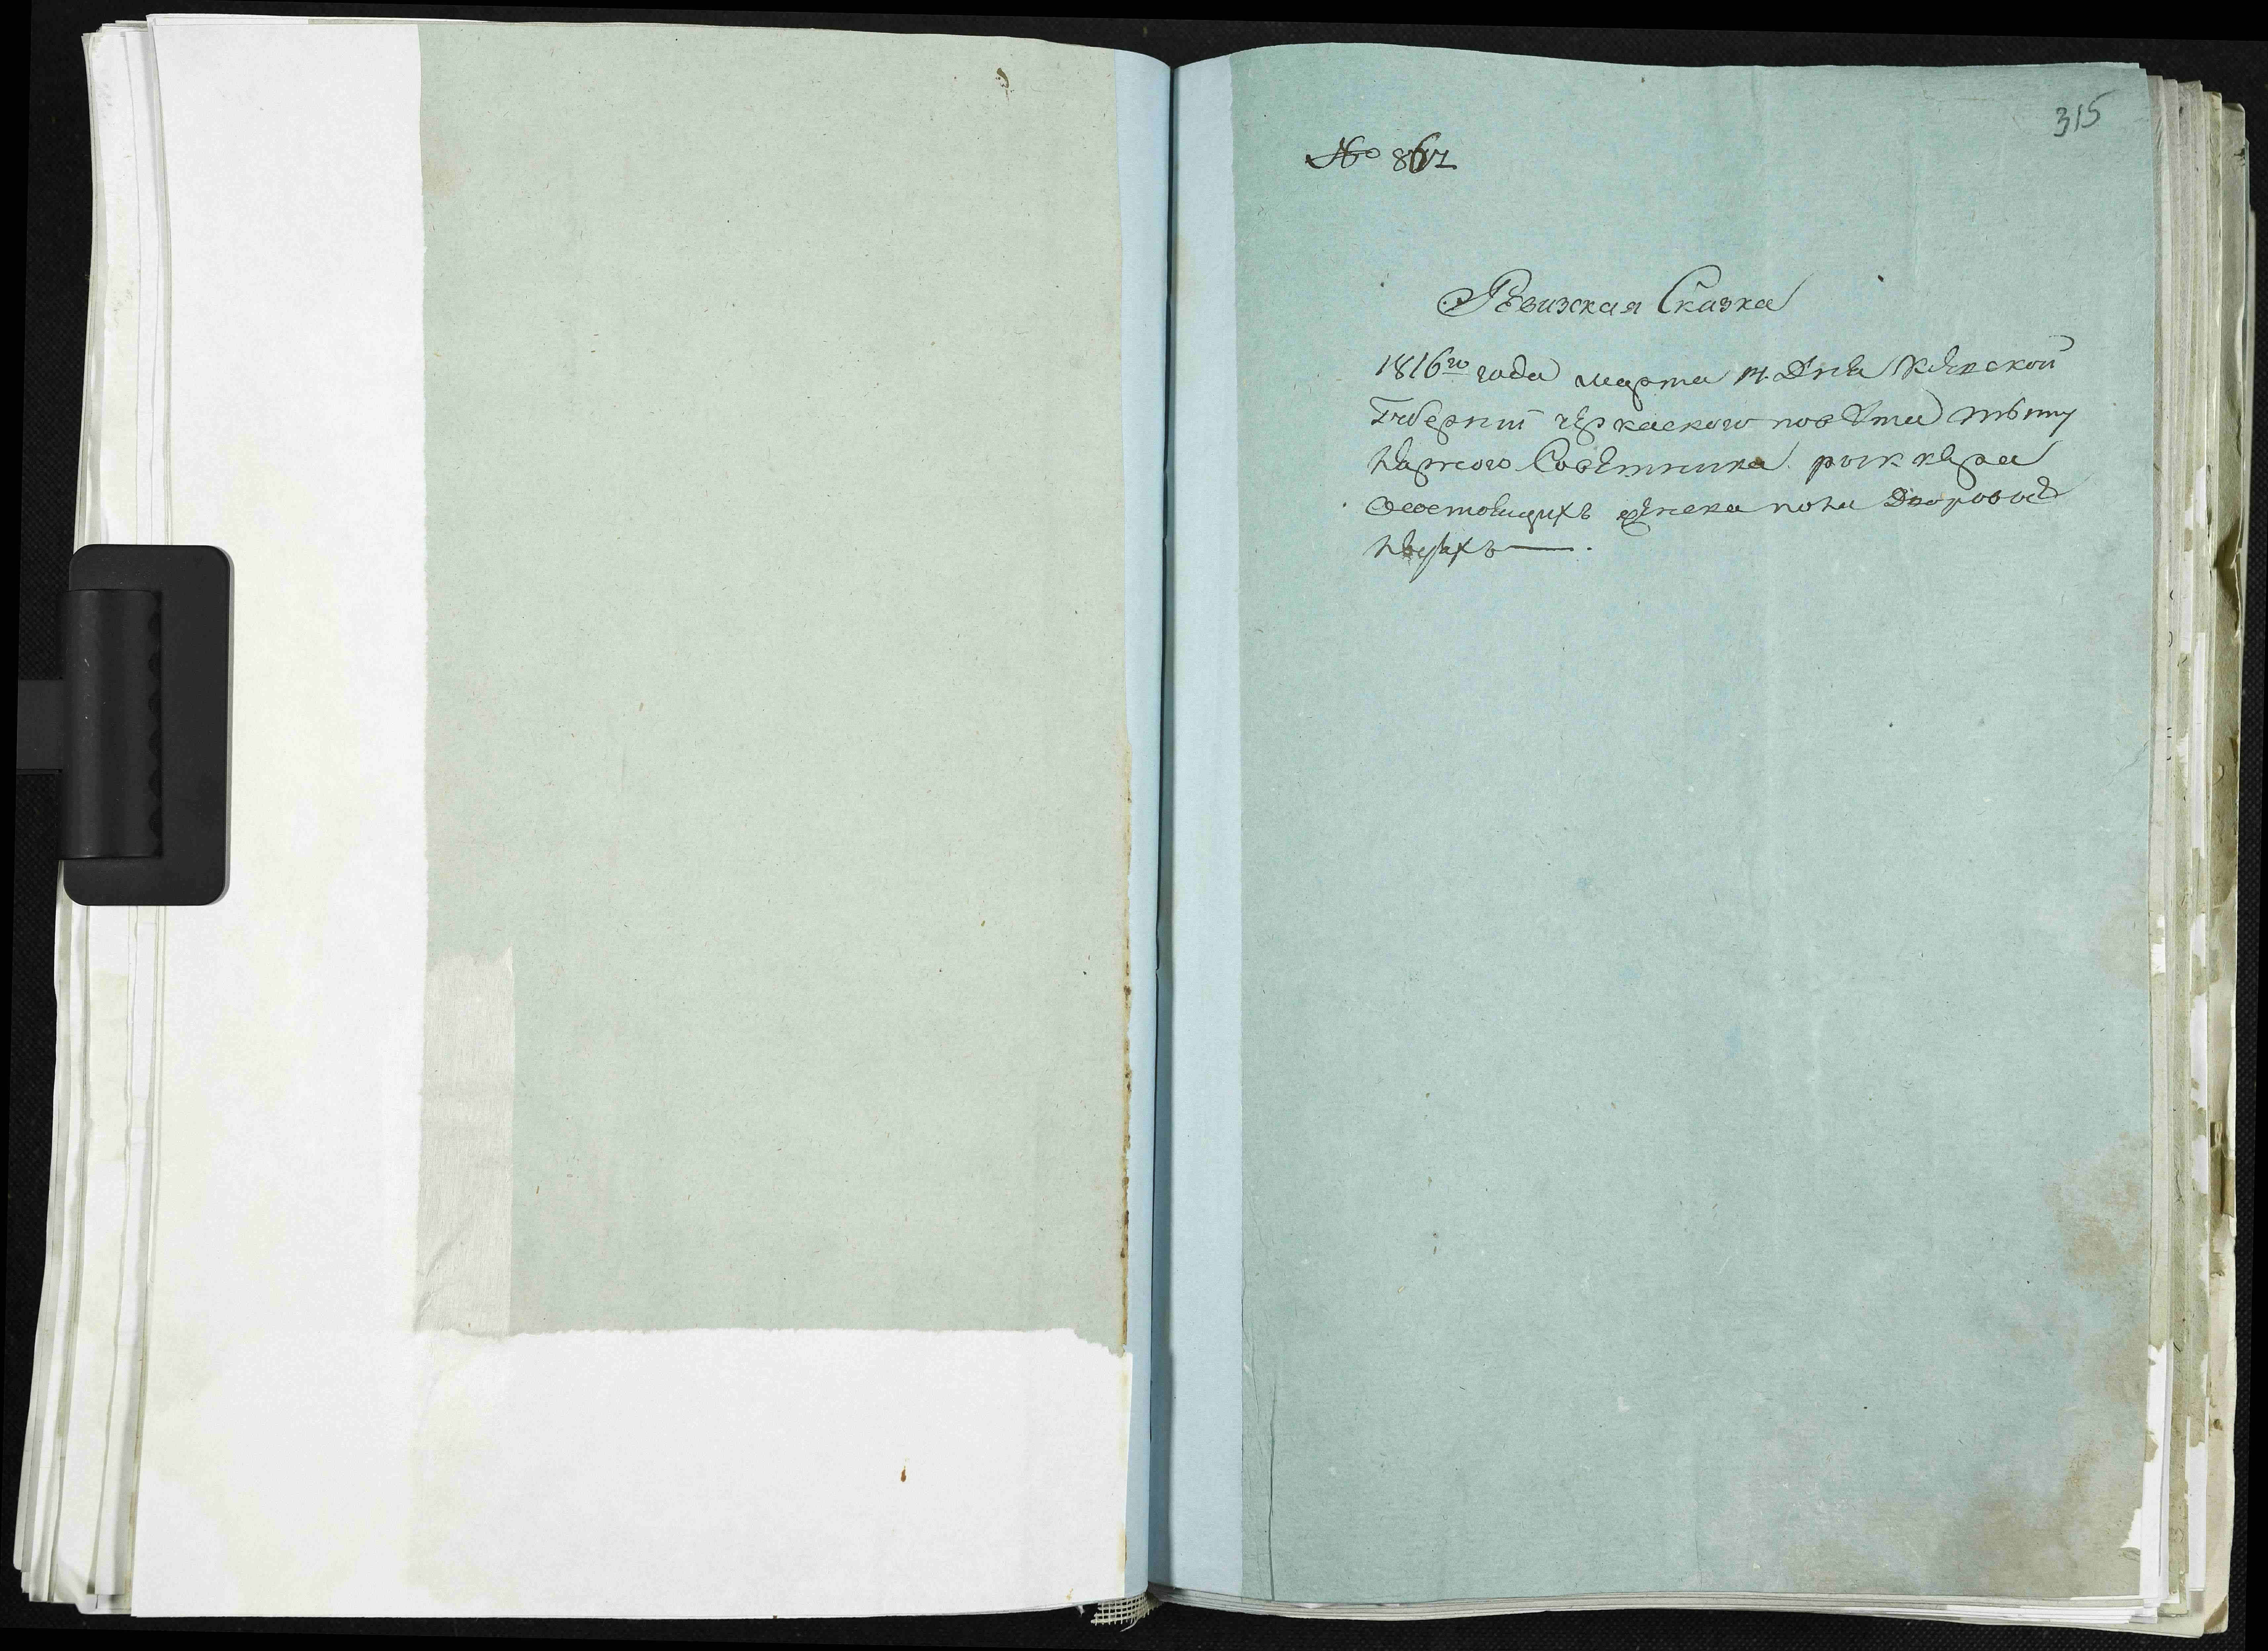 315
№ 867
Ревизская Сказка
1816го года марта 14. Дня Киевской
Губернии черкаского повета титу
лярного Советника
состоящих женска пола Дворовых
людех